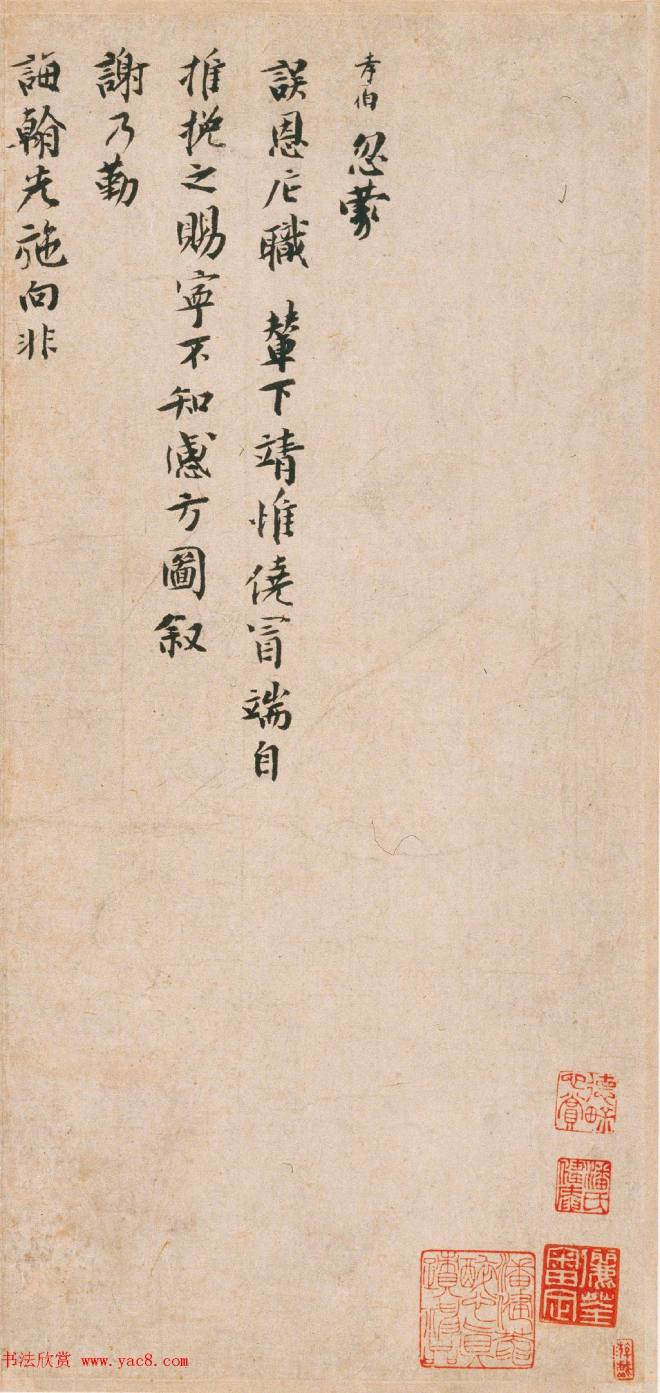 孝伯 忽蒙
誤恩庀職 輦下靖惟僥冒端自
推挽之賜寧不知感方圖叙
謝乃勤
誨翰先施向非
儷荃審定
书法欣赏 www.yac8.com